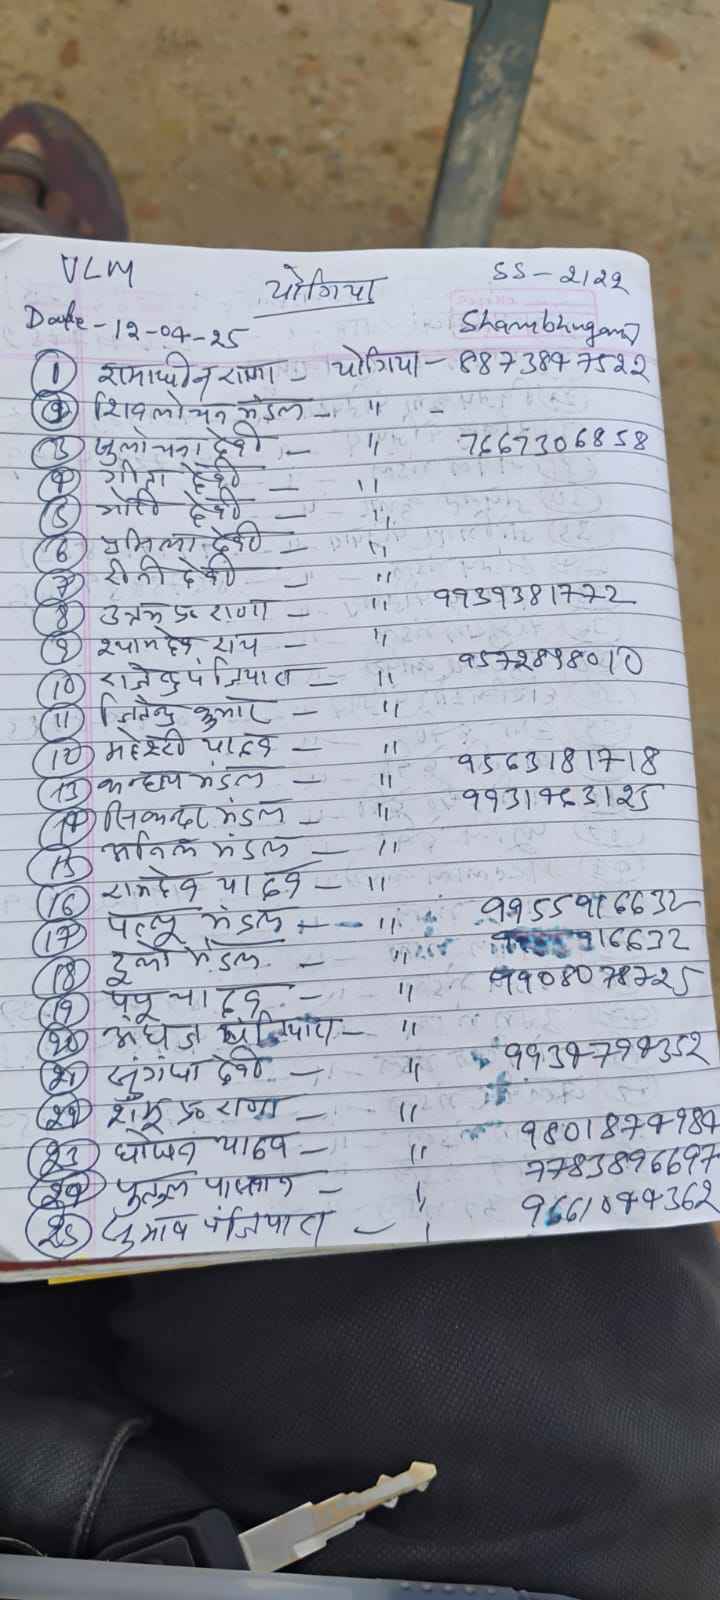 VLM योगिया SS-2122
Date-12-04-25 Shambhuganj
1 रामाधीन राणा - योगिया - 8873847522
2 शिवलोचन मंडल - " -
3 सुलोचना देवी - " 7667306858
4 गीता देवी - "
5 गोरी देवी - "
6 प्रमिला देवी - "
7 रीना देवी - "
8 उत्तम कु राणा - " 9939381772
9 श्यामदेव राय - "
10 राजेन्द्र पंजियारा - " 9572898010
11 जितेन्द्र कुमार - "
12 यादव - "
13 मंडल - " 9563181718
14 सिकन्दर मंडल - " 9931763125
15 अनिल मंडल - "
16 रामदेव यादव - "
17 पल्लू मंडल - " 9955916632
18 दुलो मंडल - " 916632
19 पप्पू यादव - " 9908078725
20 पंजियारा - "
21 सुगंधा देवी - " 9934794352
22 शंभू कु राणा - "
23 यादव - " 9801874984
24 पुतुल पासवान - " 7783896697
25 सुभाष पंजियारा - " 9661044362